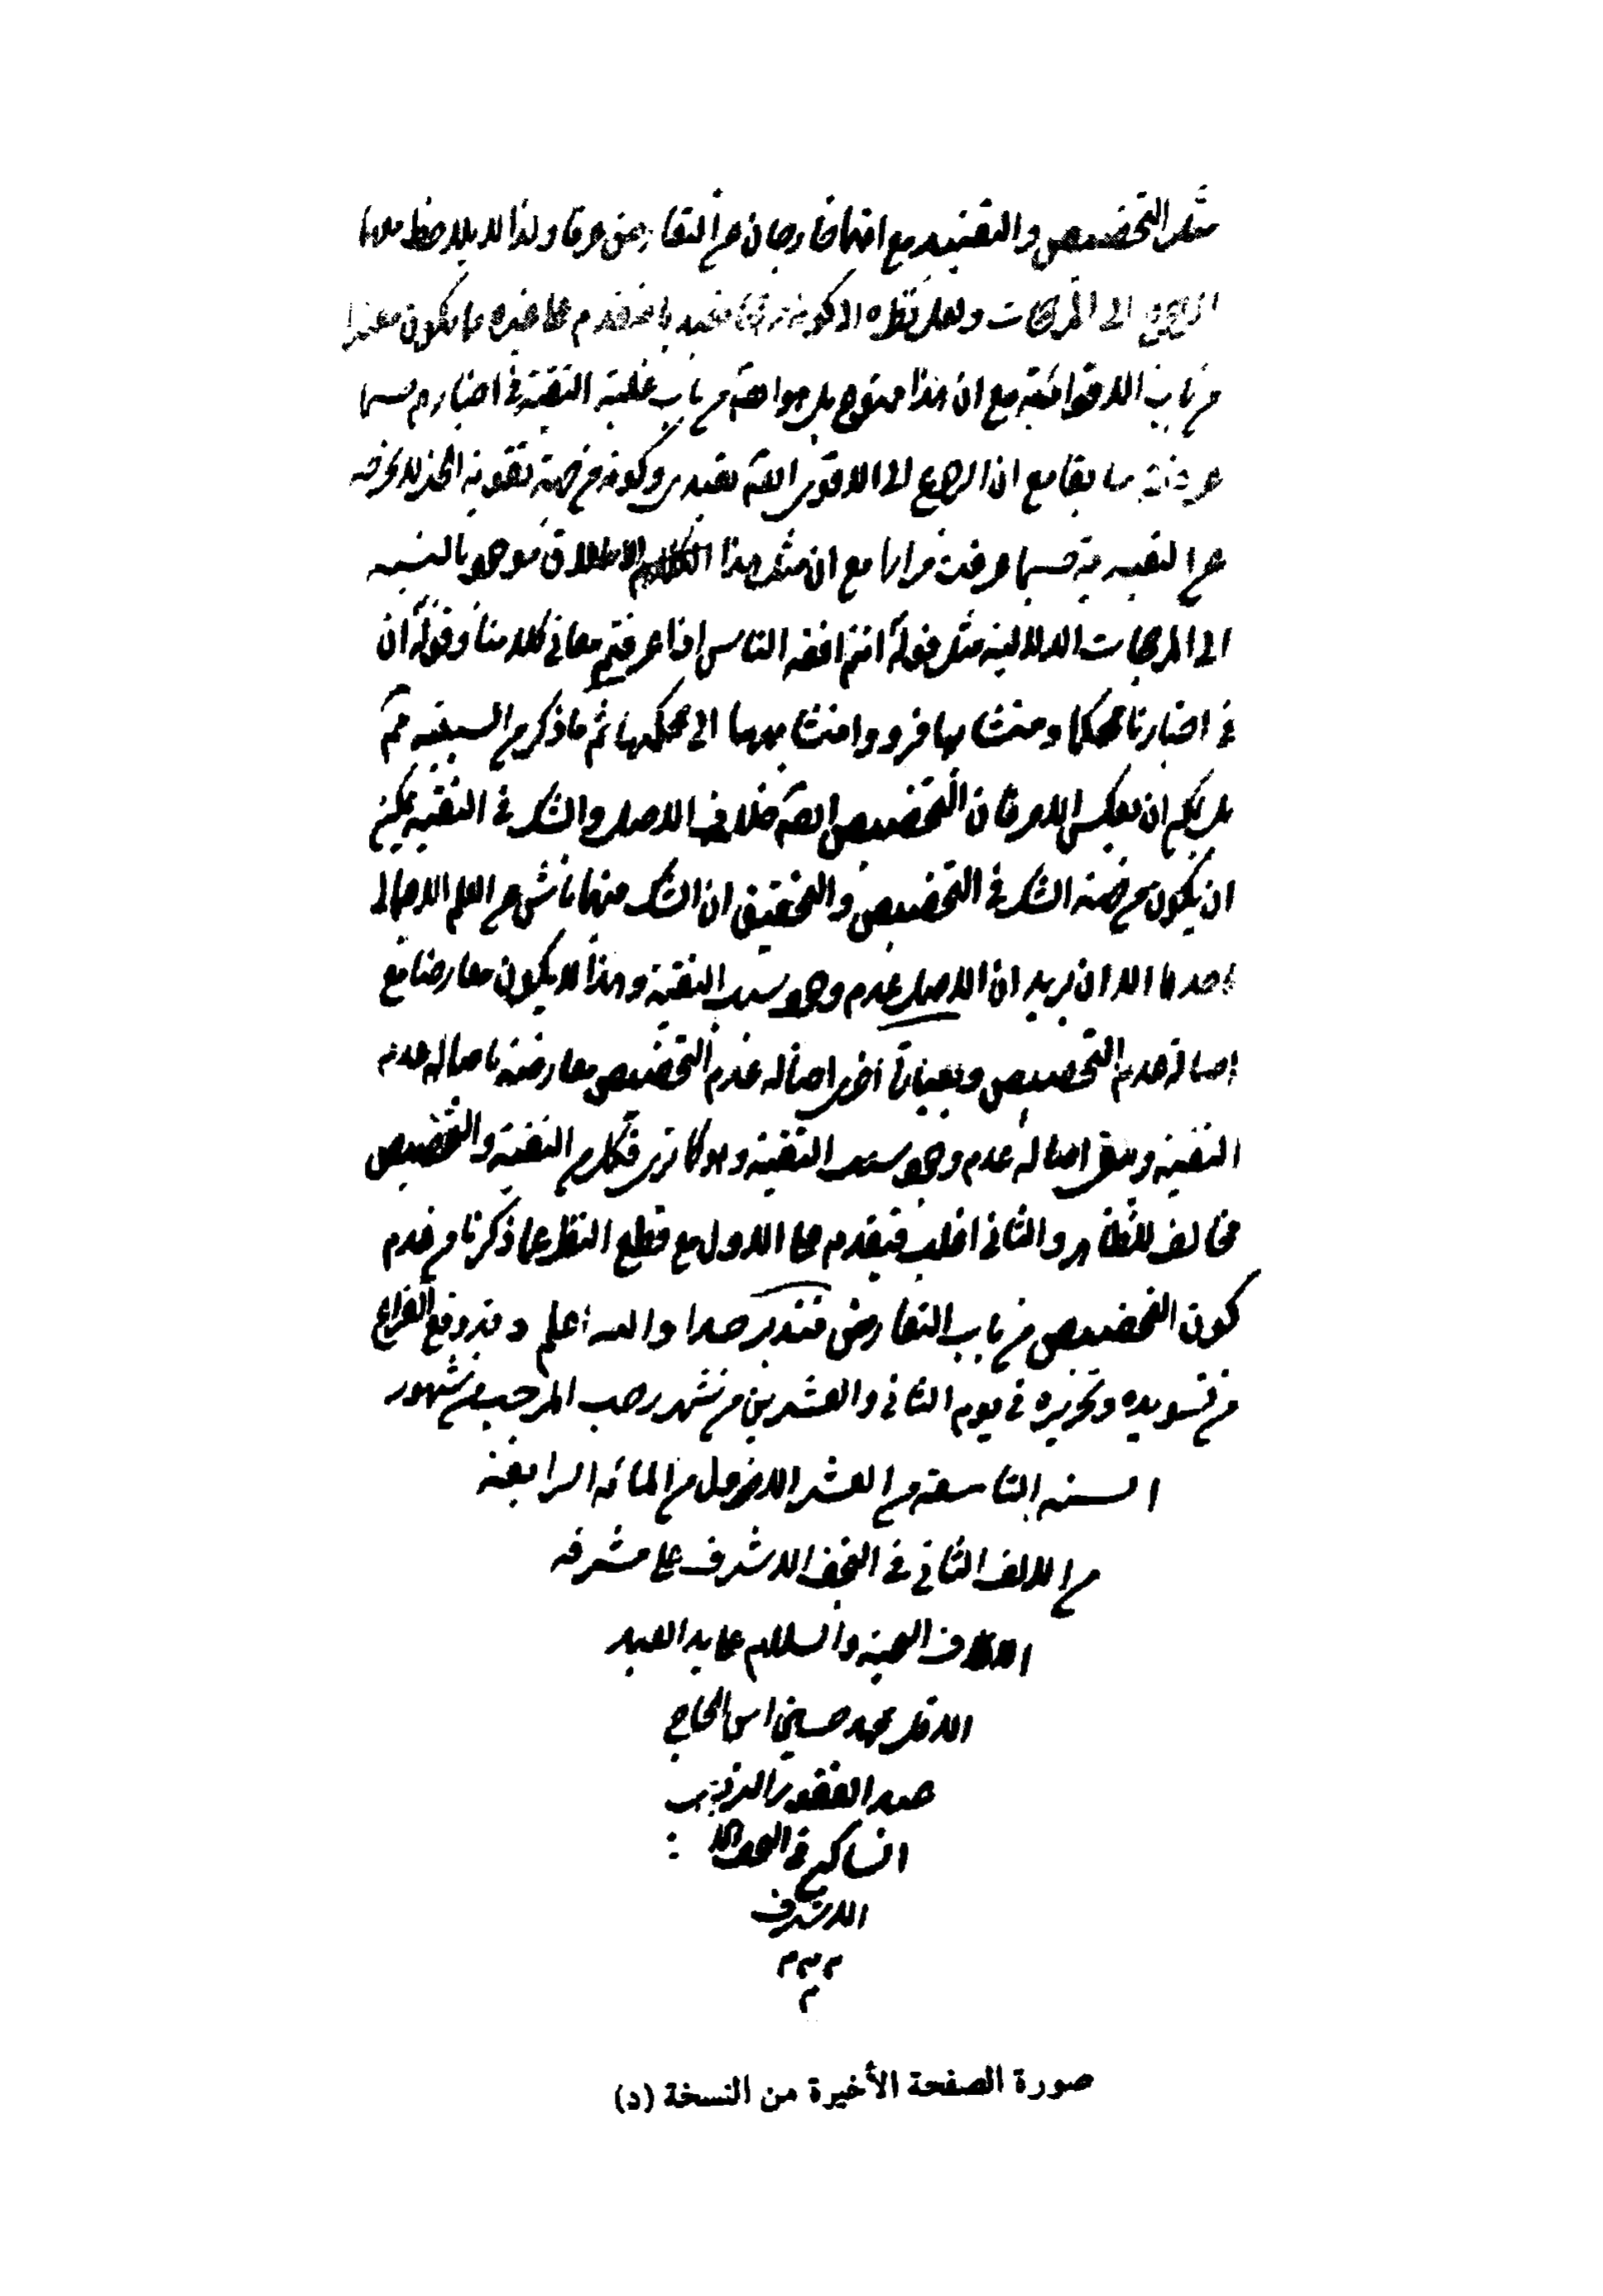 مثل التخصيص والتقييد مع انهما خارجان عن التعارض عرفا ولذا لا يلاحظ فيهما
الرجوع الى المرجحات ولعل نظره الى كونه مرجحا تعبديا فيقدم على غيره مما يكون معتبرا
من باب الاقوائية مع ان هذا ممنوع بل هو ايضا من باب غلبة التقية في اخبارهم حسبما
عرفته سابقا مع ان الرجوع الى الاقوى ايضا تعبدي وكونه من جهة تقوية الخبر لا يخرجه
عن التعبدية حسبما عرفت مرارا مع ان مثل هذا الاطلاق موجود بالنسبة
الى المرجحات الدلالية مثل قوله انتم افقه الناس اذا عرفتم معاني كلامنا وقوله ان
في اخبارنا محكما ومتشابها فردوا متشابهها الى محكمها ثم ما ذكر من السببية ثم
بل يمكن ان يعكس الامر فان التخصيص ايضا خلاف الاصل والشك في التقية يمكن
ان يكون من جهة الشك في التخصيص والتحقيق ان الشك فيهما ناش عن العلم الاجمالي
باحدهما الا ان يريد ان الاصل عدم وجود سبب التقية وهذا لا يكون معارضا مع
اصالة عدم التخصيص وبعبارة اخرى اصالة عدم التخصيص معارضة باصالة عدم
التقية ويبقى اصالة عدم وجود سبب التقية وهو كما ترى فكل من التقية والتخصيص
مخالف للظاهر والثاني اغلب فيقدم على الاول مع قطع النظر عما ذكرنا من عدم
كون التخصيص من باب التعارض فتدبر جدا والله اعلم وقد وقع الفراغ
من تسويده وتحريره في يوم الثاني والعشرين من شهر رجب المرجب من شهور
السنة التاسعة من العشر الاول من المائة الرابعة
من الالف الثاني في النجف الاشرف على مشرفه
الاف التحية والسلام على يد العبد
الاقل محمد حسين ابن الحاج
عبد الغفور اليزدي
الساكن في النجف
الاشرف
م م م
م
صورة الصفحة الأخيرة من النسخة (د)